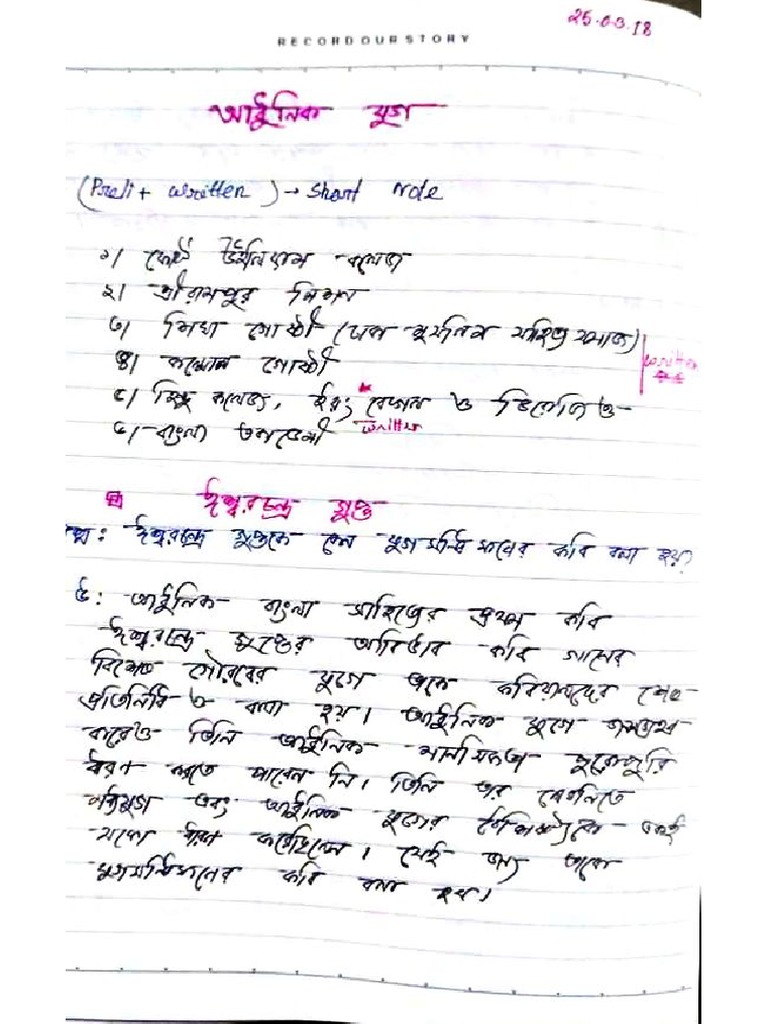 25.03.18
RECORD OUR STORY
আধুনিক যুগ
(Preli + written) → Short Note
১। ফোর্ট উইলিয়াম কলেজ
২। শ্রীরামপুর মিশন
৩। শিখা গোষ্ঠী (ঢাকা মুসলিম সাহিত্য সমাজ)
written
৪। কল্লোল গোষ্ঠী
৫। হিন্দু কলেজ, ইয়ং বেঙ্গল ও ডিরোজিও
৬। বাংলা একাডেমী written
ঈশ্বরচন্দ্র গুপ্ত
প্রশ্ন: ঈশ্বরচন্দ্র গুপ্তকে কেন যুগসন্ধিক্ষণের কবি বলা হয়?
উ: আধুনিক বাংলা সাহিত্যের প্রথম কবি
ঈশ্বরচন্দ্র গুপ্তের আবির্ভাব কবি গানের
বিশেষ গৌরবের যুগে তাকে কবিয়ালদের শেষ
প্রতিনিধি ও বলা হয়। আধুনিক যুগে জন্মগ্রহণ
করেও তিনি আধুনিক মানসিকতা পুরোপুরি
ধারণ করতে পারেন নি। তিনি তার লেখনিতে
মধ্যযুগ এবং আধুনিক যুগের বৈশিষ্ট্যকে একই
সঙ্গে ধারণ করেছিলেন। সেই জন্য তাকে
যুগসন্ধিক্ষণের কবি বলা হয়।